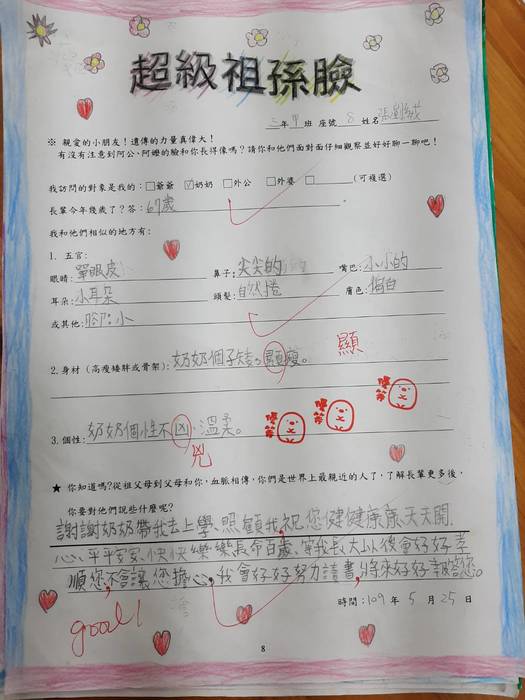 超級祖孫臉
三年甲班 座號 8 姓名張劉
※ 親愛的小朋友！遺傳的力量真偉大！
有沒有注意到阿公、阿嬤的臉和你長得像嗎？請你和他們面對面仔細觀察並好好聊一聊吧！
我訪問的對象是我的：□爺爺 ☑奶奶 □外公 □外婆 □ (可複選)
長輩今年幾歲了？答：67歲
我和他們相似的地方有：
1. 五官：
眼睛：單眼皮 鼻子：尖尖的 嘴巴：小小的
耳朵：小耳朵 頭髮：自然捲 膚色：偏白
或其他：腳：小
2. 身材 (高瘦矮胖或骨架)：奶奶個子矮，顯瘦。 顯
3. 個性：奶奶個性不凶，溫柔。
兇
★ 你知道嗎？從祖父母到父母和你，血脈相傳，你們是世界上最親近的人了，了解長輩更多後，
你要對他們說些什麼呢？
謝謝奶奶帶我去上學，照顧我，祝您健健康康、天天開
心、平平安安、快快樂樂、長命百歲。等我長大以後會好好孝
順您，不會讓您擔心，我會好好努力讀書，將來好好報答您。
時間：109 年 5 月 25 日
good!
8